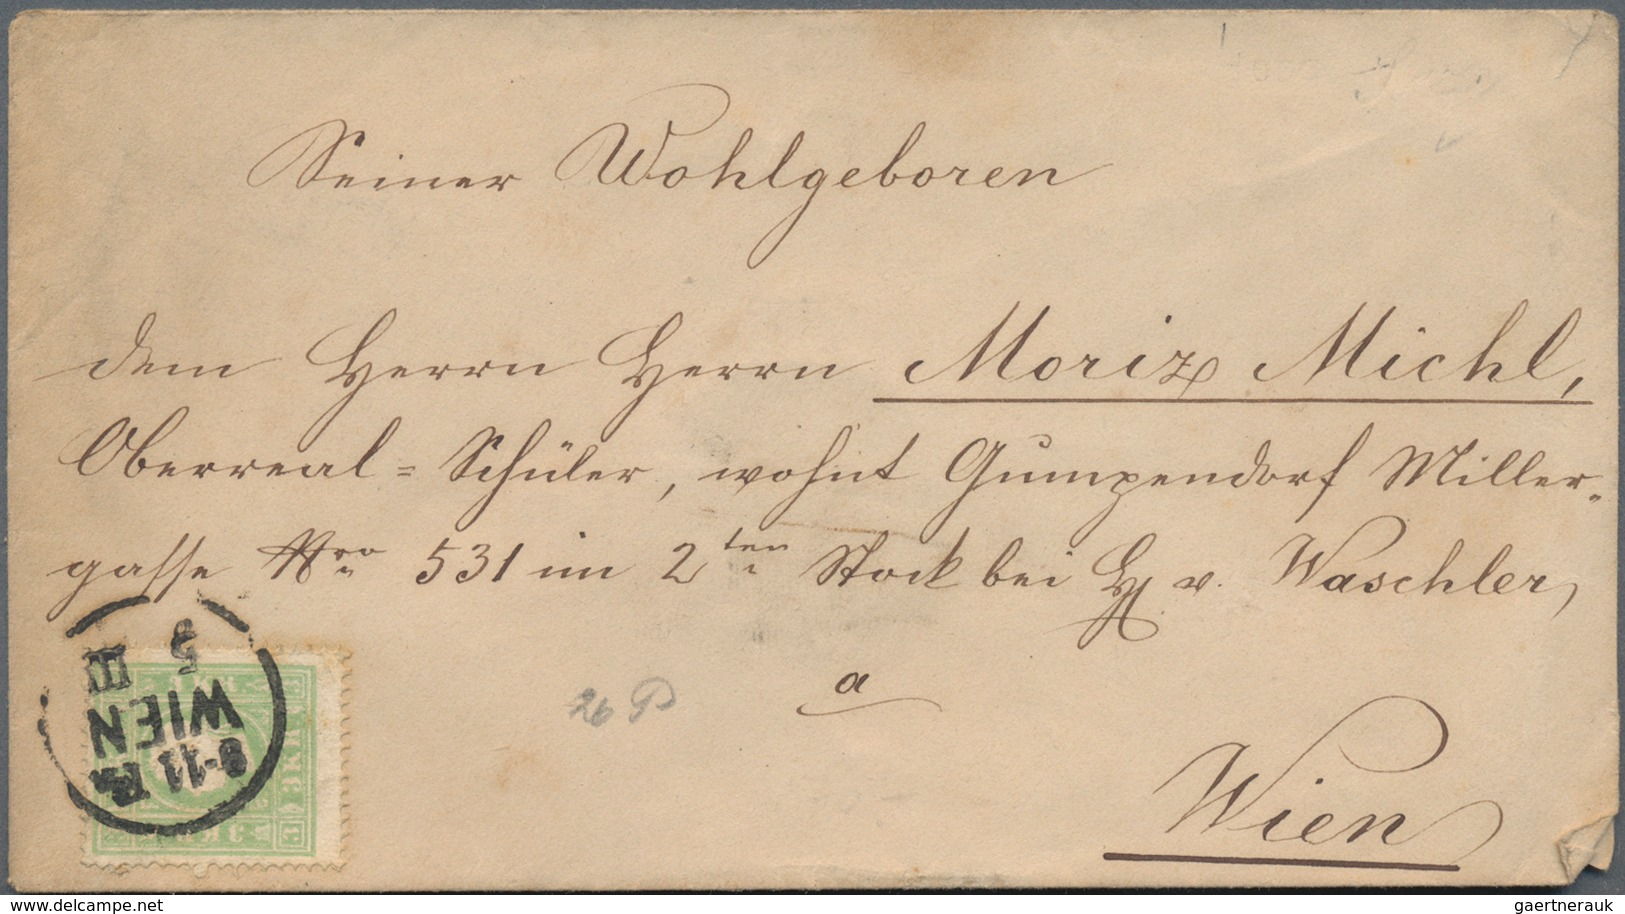 Seiner Wohlgeboren
dem Herrn Herrn Moriz Michl,
Oberreal=Schüler, wohnt Gumpendorf Miller-
gasse Nro 531 im 2ten Stock bei H v. Waschler,
a
Wien
26 P
5 3
III
WIEN
8-11 F
3 KR
delcampe.net
gaertnerauk